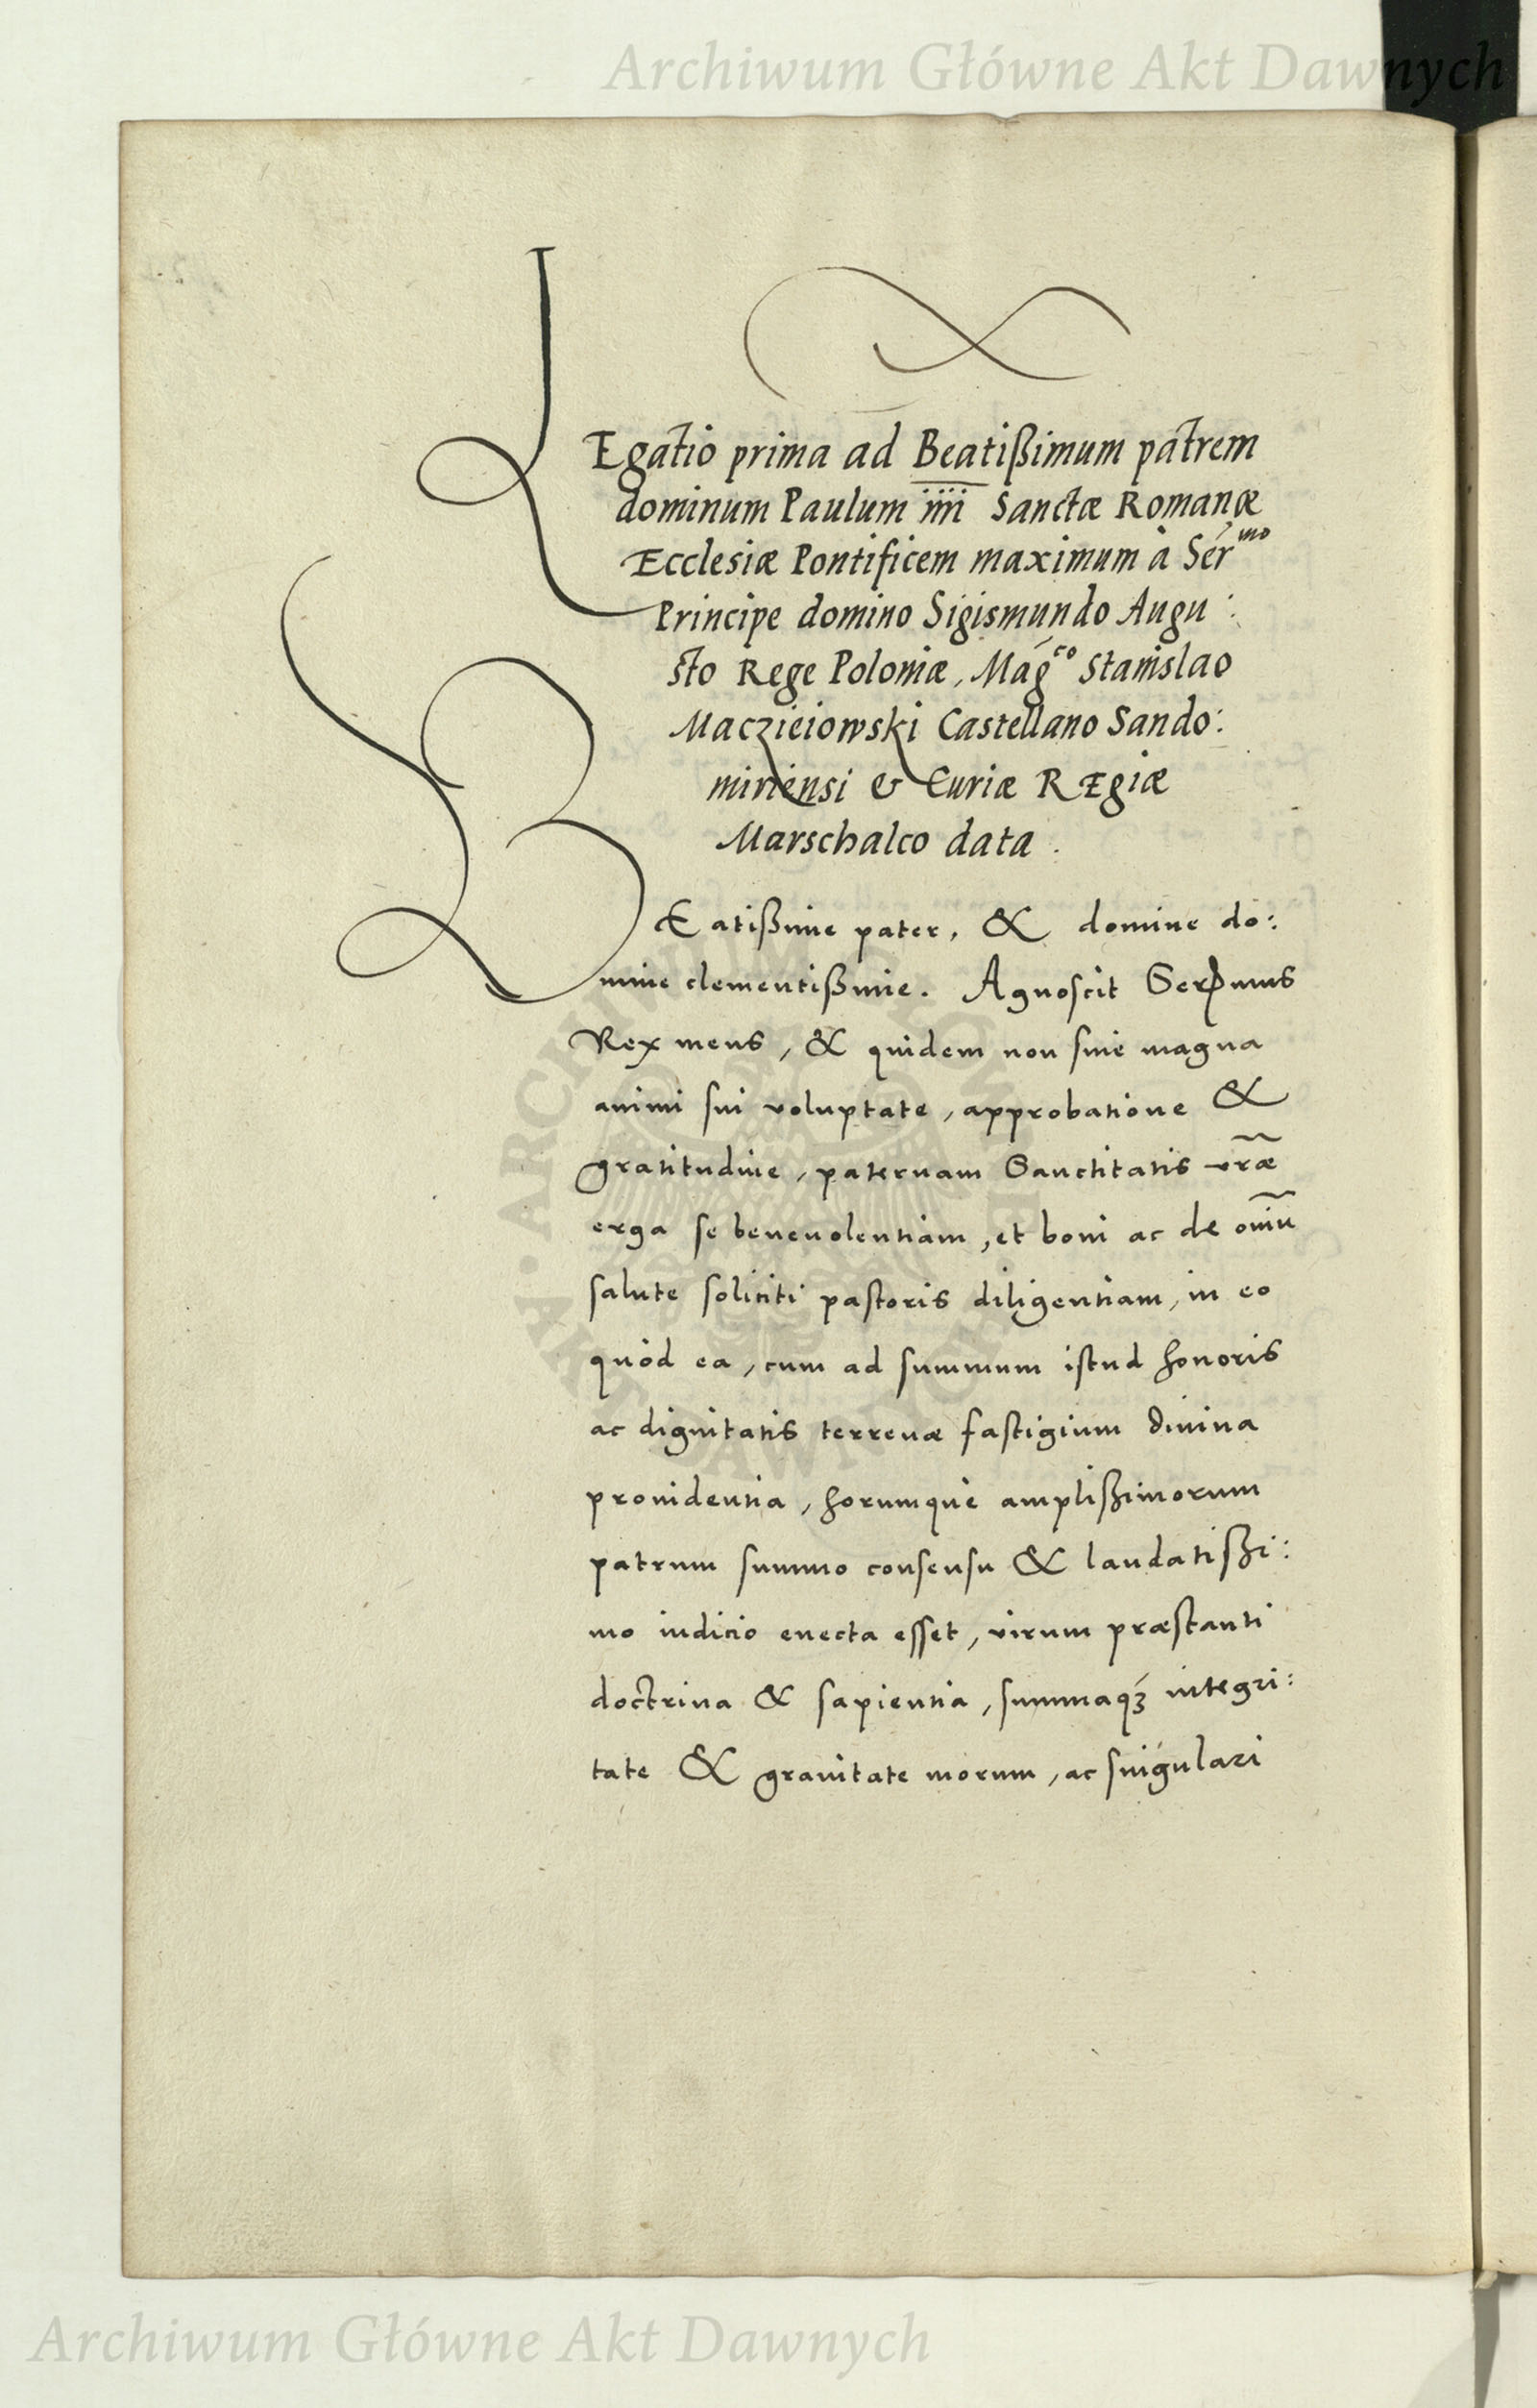 Archiwum Główne Akt Dawnych
LEgatio prima ad Beatißimum patrem
dominum Paulum iiii Sanctæ Romanæ
Ecclesiæ Pontificem maximum à Ser^mo
Principe domino Sigismundo Augu:
sto Rege Poloniæ, Mag^co Stanislao
Maczieiowski Castellano Sando:
miriensi & Curiæ REgiæ
Marschalco data.
BEatißime pater, & domine do:
mine clementißime. Agnoscit Serᵽmus
Rex meus, & quidem non sine magna
animi sui voluptate, approbatione &
gratitudine, paternam Sanctitatis vr̃æ
erga se beneuolentiam, et boni ac de om̃iũ
salute soliciti pastoris diligentiam, in eo
quòd ea, cum ad summum istud honoris
ac dignitatis terrenæ fastigium diuina
prouidentia, horumque amplißimorum
patrum summo consensu & laudatißi:
mo iudicio euecta esset, virum præstanti
doctrina & sapientia, summaqꝫ integri:
tate & grauitate morum, ac singulari
ARCHIWUM GŁÓWNE AKT DAWNYCH
Archiwum Główne Akt Dawnych